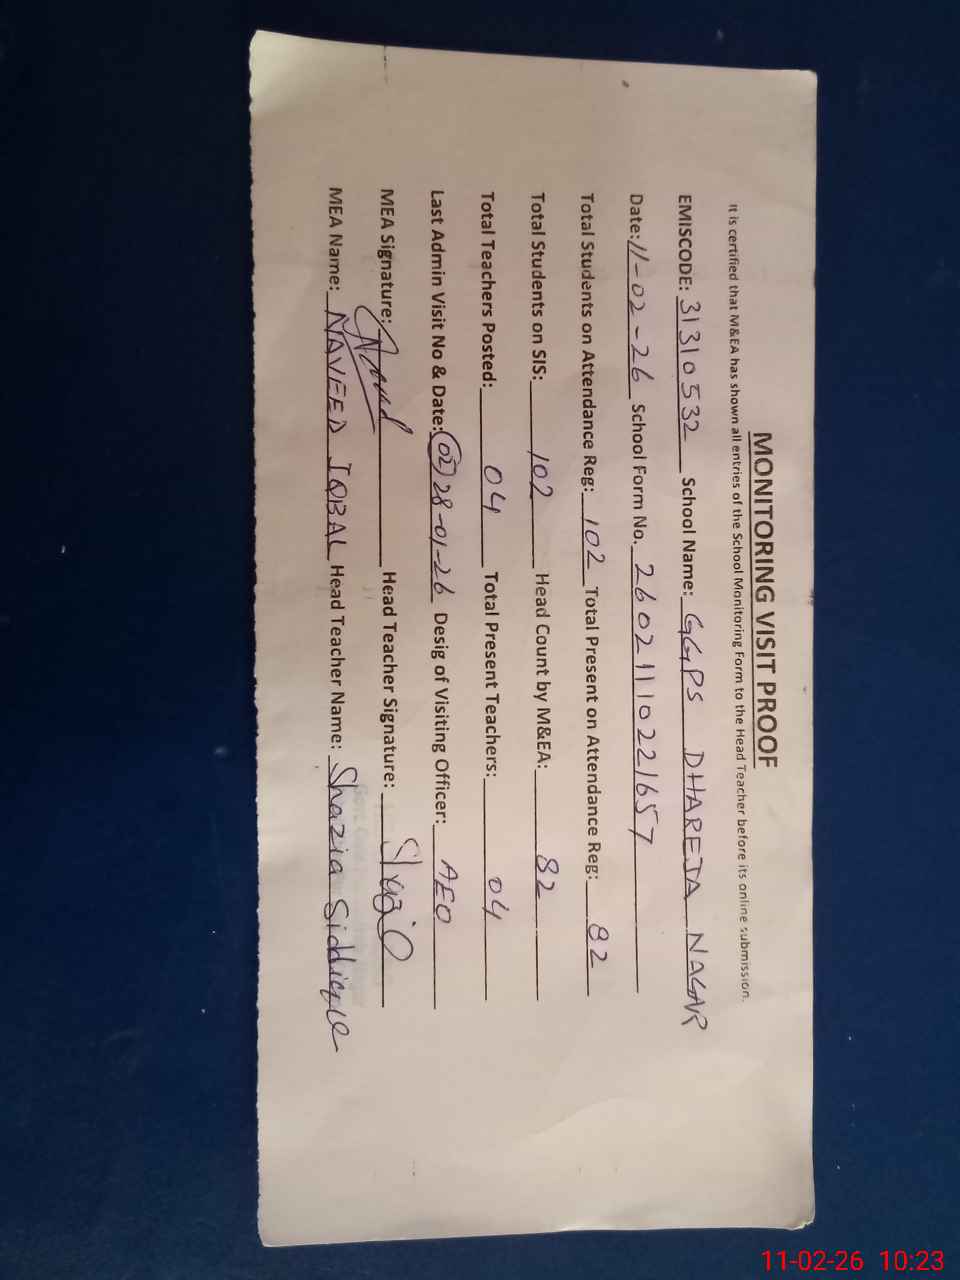 MONITORING VISIT PROOF
It is certified that M&EA has shown all entries of the School Monitoring Form to the Head Teacher before its online submission.
EMISCODE: 31310532 School Name: GGPS DHAREJA NAGAR
Date: 11-02-26 School Form No. 26021110221657
Total Students on Attendance Reg: 102 Total Present on Attendance Reg: 82
Total Students on SIS: 102 Head Count by M&EA: 82
Total Teachers Posted: 04 Total Present Teachers: 04
Last Admin Visit No & Date: 02 28-01-26 Desig of Visiting Officer: AEO
MEA Signature: Head Teacher Signature:
MEA Name: NAVEED IQBAL Head Teacher Name: Shazia Siddique
11-02-26 10:23